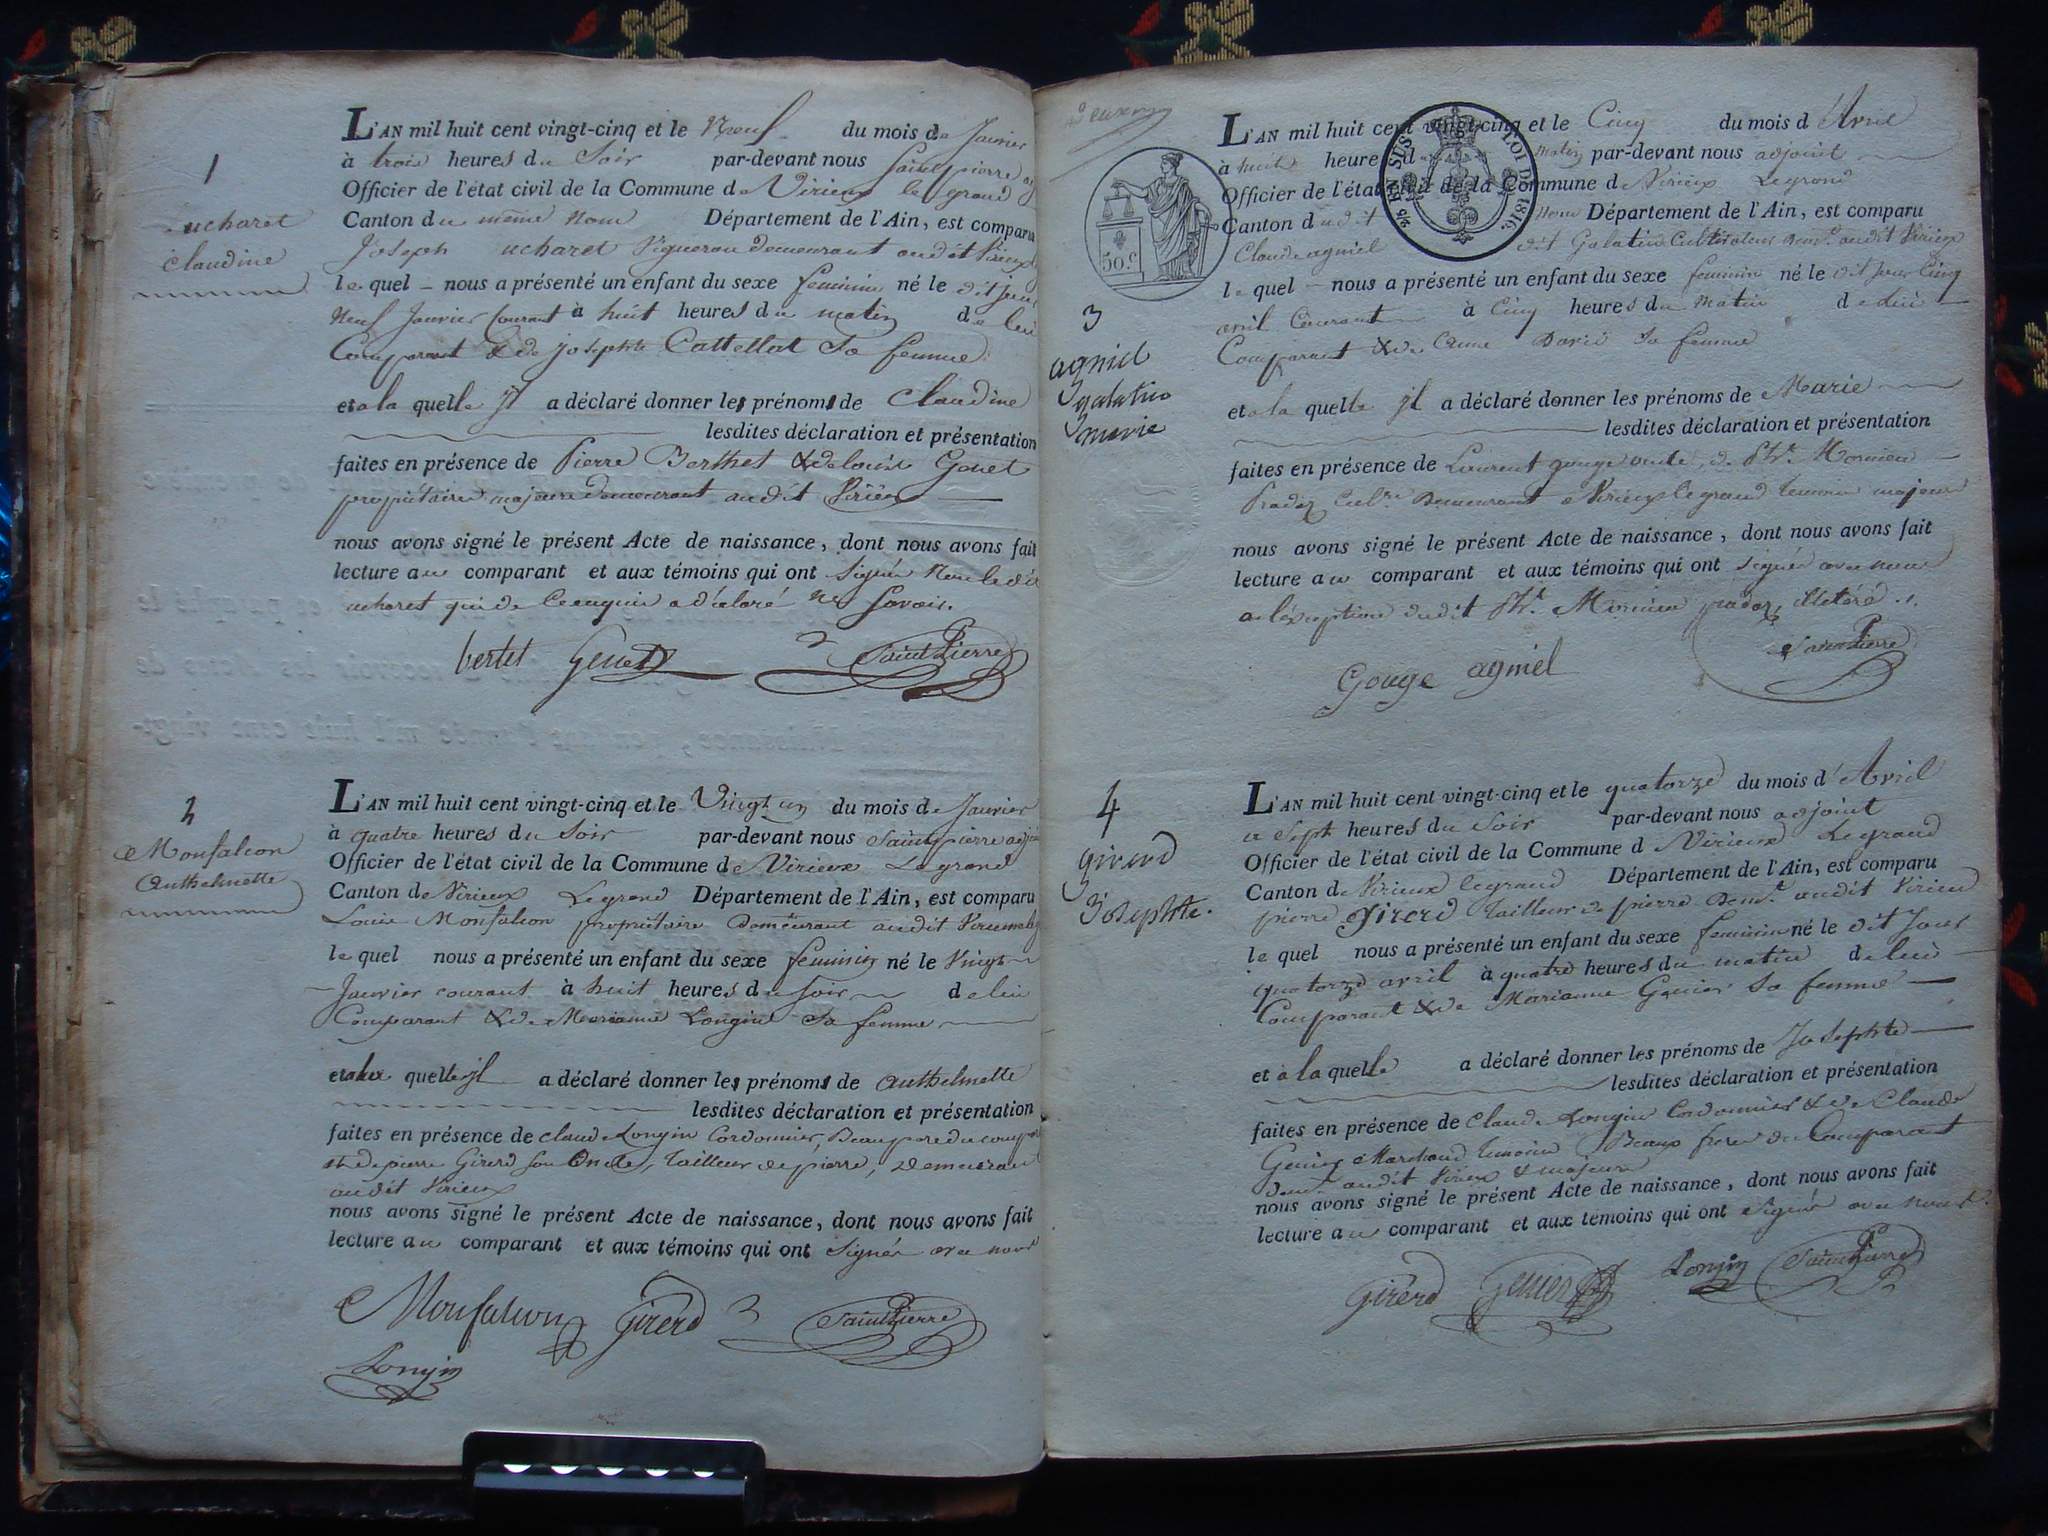 1
ucharet
claudine
L'AN mil huit cent vingt-cinq et le Neuf du mois de Janvier
à trois heures du Soir par-devant nous Saintpierre
Officier de l'état civil de la Commune de Virieux le grand
Canton du même Nom Département de l'Ain, est comparu
Joseph ucharet Vigneron demeurant audit Virieux
le quel nous a présenté un enfant du sexe feminin né le dit jour
Neuf Janvier Courant à huit heures du matin de lui
Comparant & de josephte Cattellat Sa femme
et a la quelle jl a déclaré donner les prénoms de Claudine
lesdites déclaration et présentation
faites en présence de Pierre Berthet & de louis Genet
propriétaires majeurs demeurant audit Virieux
nous avons signé le présent Acte de naissance, dont nous avons fait
lecture au comparant et aux témoins qui ont Signés Non ledit
ucharet qui de Ce enquis a déclaré ne Savoir.
bertet Genet SaintPierre
2
Monfalcon
Anthelmette
L'AN mil huit cent vingt-cinq et le Vingt un du mois de Janvier
à quatre heures du Soir par-devant nous Saintpierre adjoint
Officier de l'état civil de la Commune de Virieux Legrand
Canton de Virieux Legrand Département de l'Ain, est comparu
Louis Monfalcon propriétaire demeurant audit Virieux
le quel nous a présenté un enfant du sexe feminin né le Vingt
Janvier courant à huit heures du Soir de lui
Comparant & de Marianne Longin Sa femme
et a la quelle jl a déclaré donner les prénoms de Anthelmette
lesdites déclaration et présentation
faites en présence de claude Longin Cordonnier, Beaupere du comparant
et de pierre Girerd son Oncle, tailleur de pierre, demeurant
audit Virieux
nous avons signé le présent Acte de naissance, dont nous avons fait
lecture au comparant et aux témoins qui ont Signés avec nous
Monfalcon Girerd SaintPierre
Longin
50.c
25 EN SUS LOI DE 1816.
3
agniel
galatin
marie
L'AN mil huit cent vingt-cinq et le Cinq du mois d'Avril
à huit heures du matin par-devant nous adjoint
Officier de l'état civil de la Commune de Virieux Legrand
Canton du dit Nom Département de l'Ain, est comparu
Claude agniel dit Galatin Cultivateur demt. audit Virieux
le quel nous a présenté un enfant du sexe feminin né le dit jour Cinq
avril Courant à Cinq heures du matin de lui
Comparant & de Anne David Sa femme
et a la quelle jl a déclaré donner les prénoms de Marie
lesdites déclaration et présentation
faites en présence de Laurent gouge
demeurant a Virieux legrand temoins majeurs
nous avons signé le présent Acte de naissance, dont nous avons fait
lecture au comparant et aux témoins qui ont signés avec nous
a l'exception dudit illetéré.
Gouge agniel SaintPierre
4
girerd
Josephte.
L'AN mil huit cent vingt-cinq et le quatorze du mois d'Avril
a Sept heures du Soir par-devant nous adjoint
Officier de l'état civil de la Commune d Virieux Legrand
Canton de Virieux legrand Département de l'Ain, est comparu
pierre Girerd tailleur de pierre demt. audit Virieu
le quel nous a présenté un enfant du sexe feminin né le dit Jour
quatorze avril à quatre heures du matin de lui
Comparant & de Marianne Genier Sa femme
et à la quelle a déclaré donner les prénoms de Josephte
lesdites déclaration et présentation
faites en présence de Claude Longin Cordonnier & de Claude
Genier Marchand temoins Beaux freres du Comparant
demt. audit Virieu & majeurs
nous avons signé le présent Acte de naissance, dont nous avons fait
lecture au comparant et aux témoins qui ont Signés avec nous
Girerd Genier Longin SaintPierre